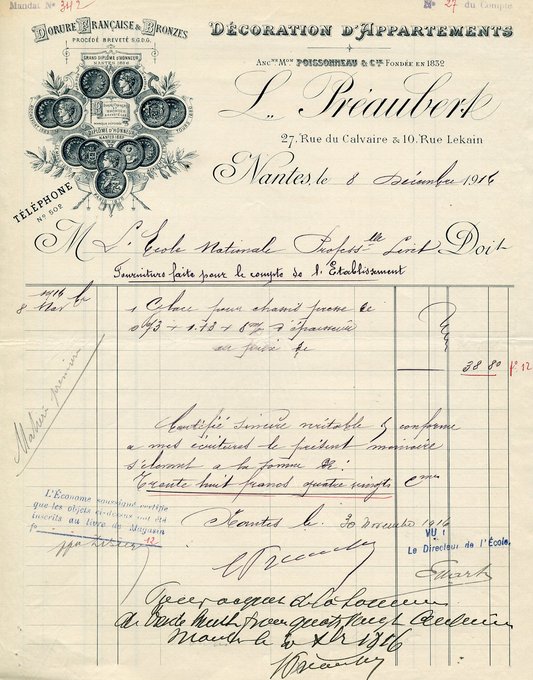 Mandat N° 342
N° 27 du Compte
DORURE FRANÇAISE & BRONZES
PROCÉDÉ BREVETÉ S.G.D.G.
GRAND DIPLÔME D'HONNEUR
NANTES 1886
DIPLÔME D'HONNEUR
TÉLÉPHONE
N° 502
DÉCORATION D'APPARTEMENTS
ANCNE MON POISSONNEAU & CIE FONDÉE EN 1832
L. Préaubert
27, Rue du Calvaire & 10, Rue Lekain
Nantes, le 8 Décembre 1916
M L'Ecole Nationale Professlle Livet Doit
Fourniture faite pour le compte de l'Etablissement
1916
8
1 Glace pour chassis presse
0,73 + 1.13 + 8 d'épaisseur
38 80 f° 12
Matière première
Certifié sincère véritable & conforme
a mes écritures le présent memoire
s'élevant a la somme de :
Trente huit francs quatre vingts cmes
Nantes le 30 Novembre 1916
L'Économe soussigné certifie
que les objets ci-dessus ont été
inscrits au livre de Magasin
f° 12
VU :
Le Directeur de l'École,
Pour acquit de la somme
de trente huit francs quatre vingt centimes
1916